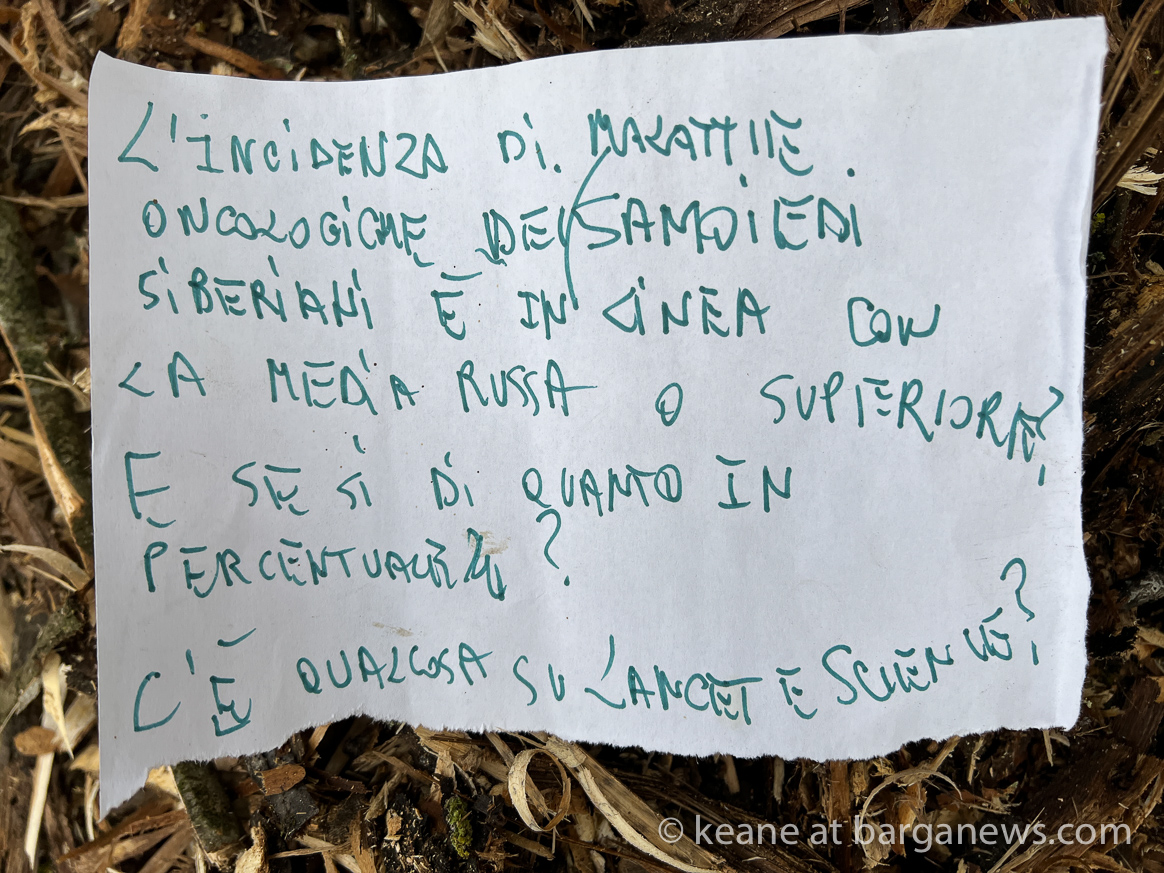 L'INCIDENZA DI. MALATTIE.
ONCOLOGICHE DEI SAMOIEDI
SIBERIANI È IN LINEA CON
LA MEDIA RUSSA O SUPERIORE?
E SE SI DI QUANTO IN
PERCENTUALE?
C'È QUALCOSA SU LANCET E SCIENCE?
© keane at barganews.com